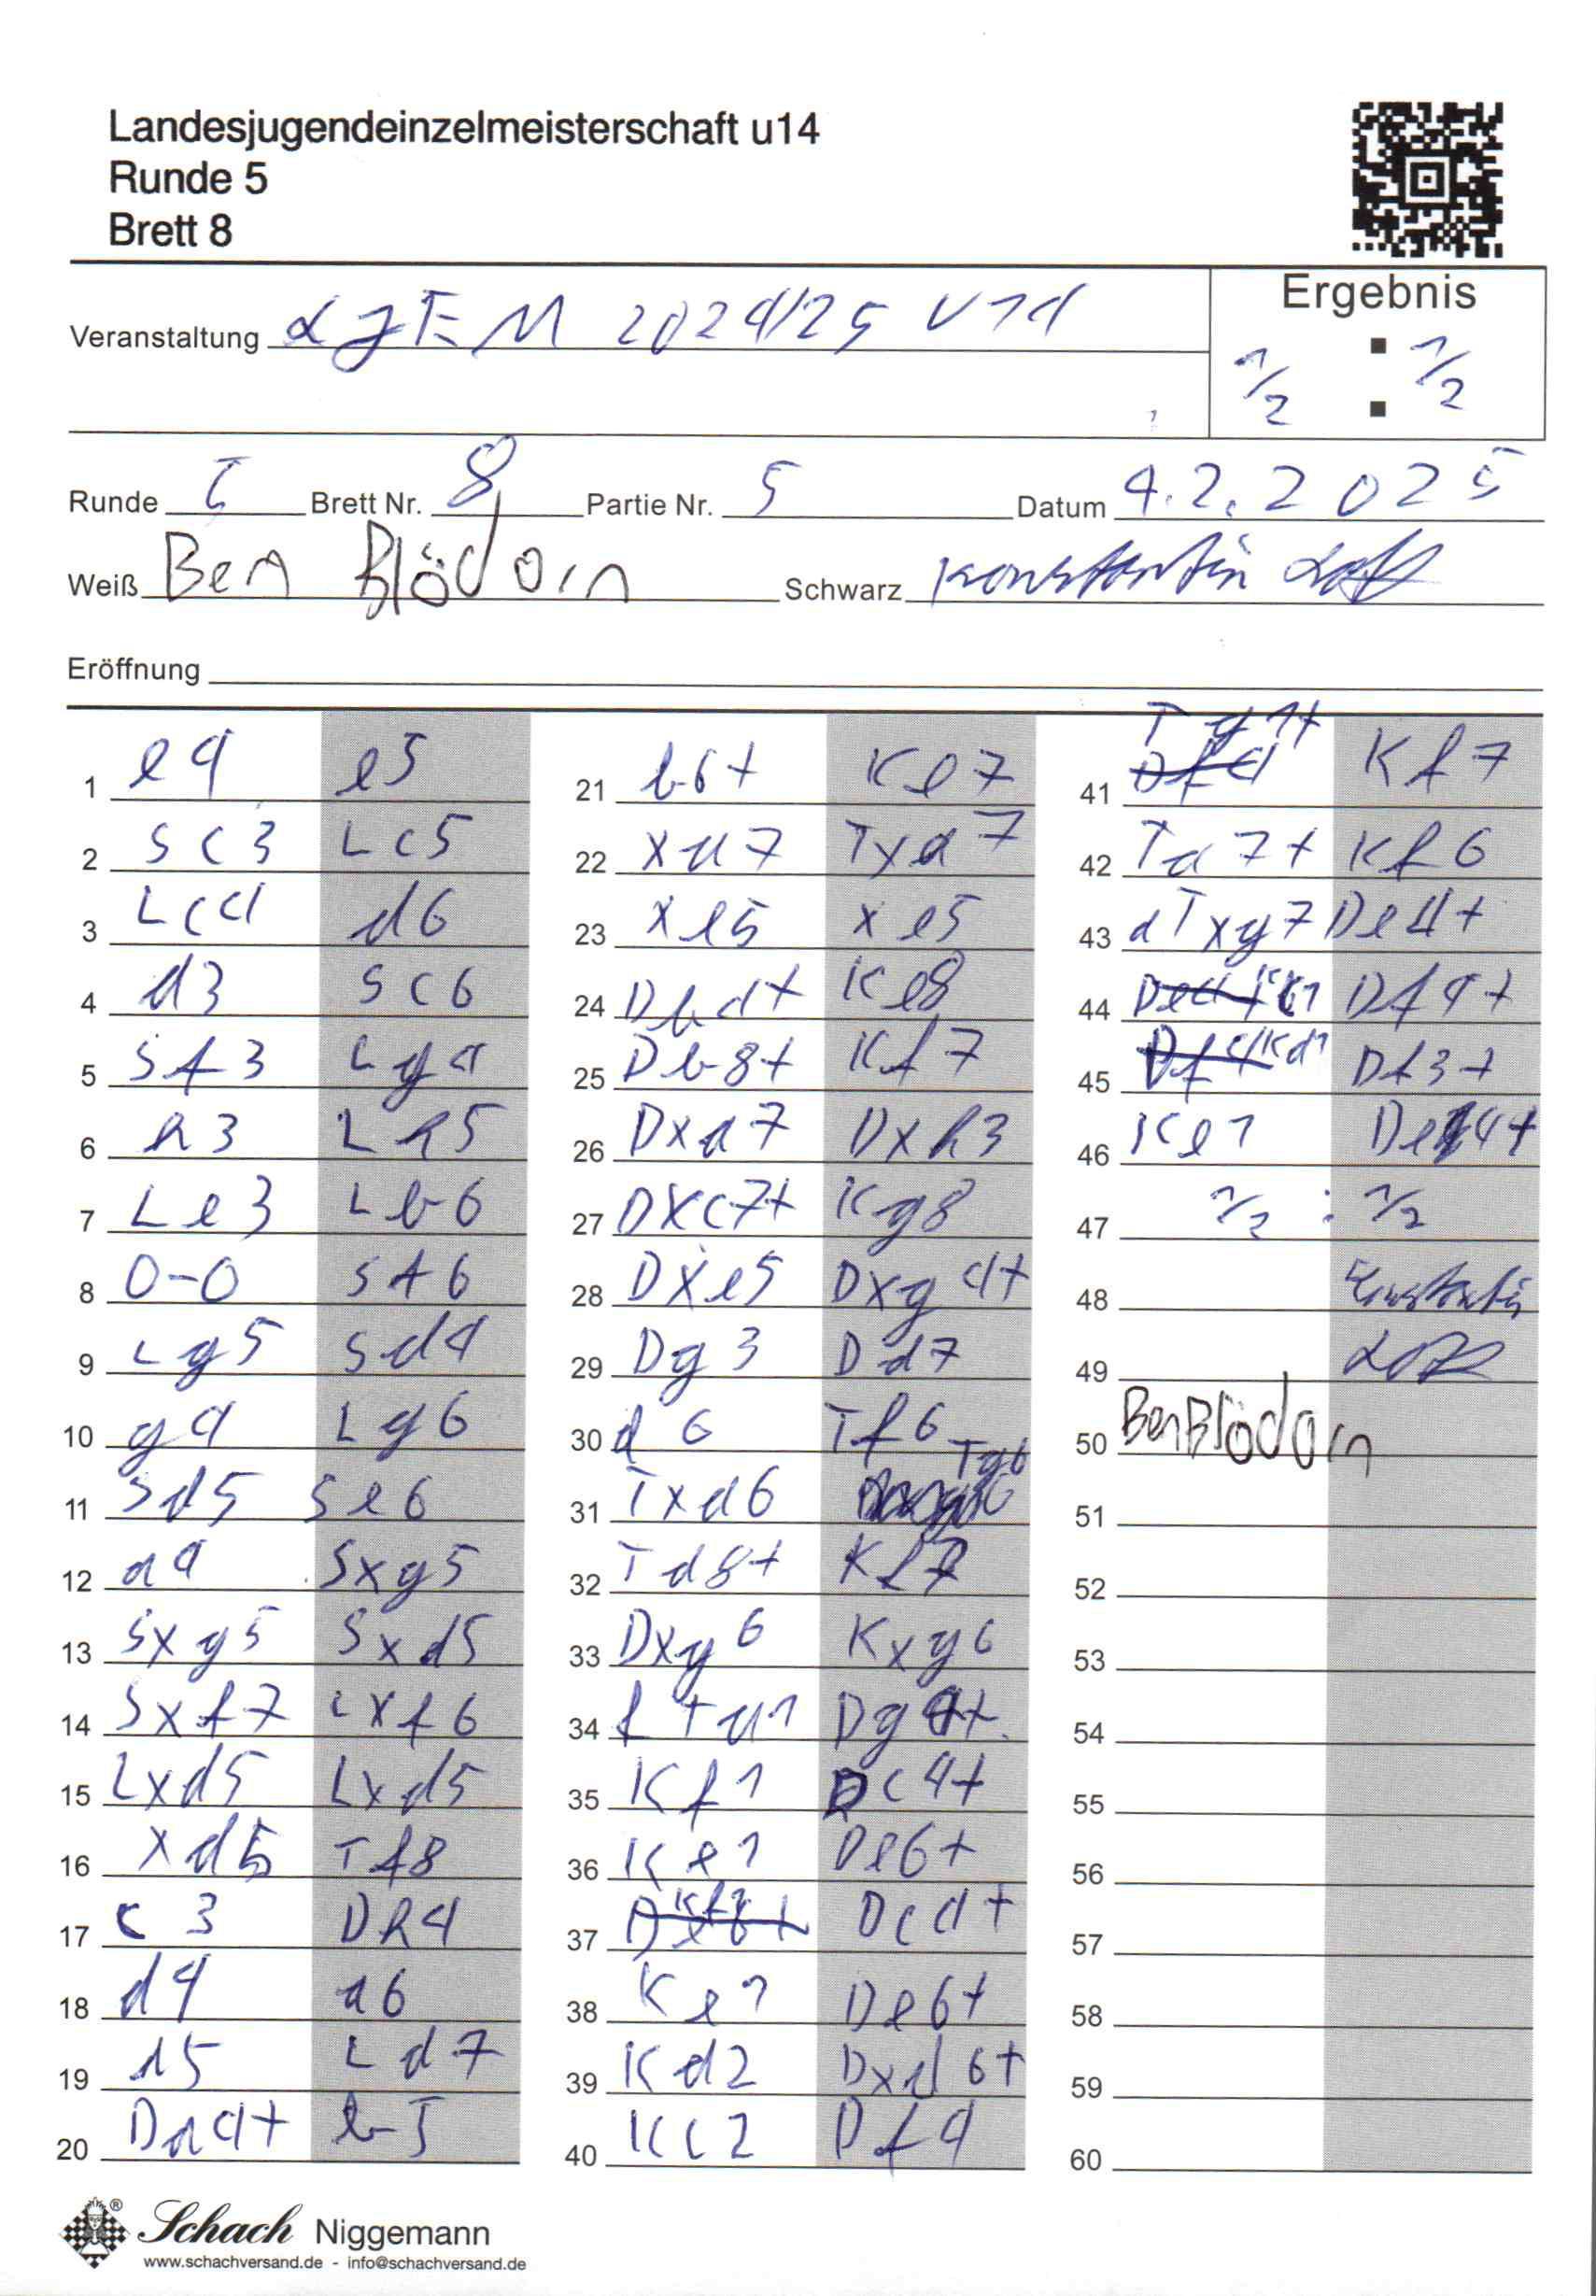 Landesjugendeinzelmeisterschaft u14
Runde 5
Brett 8
Veranstaltung LJEM 2024/25 U14
Ergebnis
1/2 : 1/2
Runde 5 Brett Nr. 8 Partie Nr. 5 Datum 4.2.2025
Weiß Ben Blödorn Schwarz Konstantin
Eröffnung
1 e4 e5
2 Sc3 Lc5
3 Lc4 d6
4 d3 Sc6
5 Sf3 Lg4
6 h3 Lh5
7 Le3 Lb6
8 0-0 Sf6
9 Lg5 Sd4
10 g4 Lg6
11 Sd5 Se6
12 a4 Sxg5
13 Sxg5 Sxd5
14 Sxf7 Lxf6
15 Lxd5 Lxd5
16 xd5 Tf8
17 c3 Dh4
18 d4 a6
19 d5 Ld7
20 Da4+ b5
21 b6+ Ke7
22 xa7 Txa7
23 xe5 xe5
24 Db4+ Ke8
25 Db8+ Kf7
26 Dxa7 Dxh3
27 Dxc7+ Kg8
28 Dxe5 Dxg4+
29 Dg3 Dd7
30 d6 Tf6
31 Txd6 Tg6
32 Td8+ Kf7
33 Dxg6 Kxg6
34 f Ta1 Dg4+
35 Kf1 Dc4+
36 Ke1 De6+
37 Kf1 Dc4+
38 Ke1 De6+
39 Kd2 Dxd6+
40 Kc2 Df4
41 Tg1+ Kf7
42 Ta7+ Kf6
43 dTxg7 De4+
44 Kc1 Df4+
45 Kd1 Df3+
46 Ke1 De4+
47 1/2 : 1/2
48 Konstantin
49
50 Ben Blödorn
51
52
53
54
55
56
57
58
59
60
Schach Niggemann
www.schachversand.de - info@schachversand.de